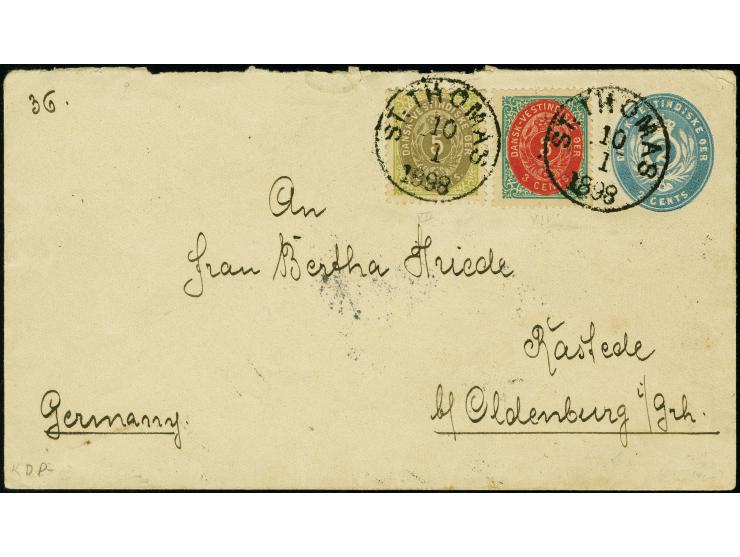 36.
ST. THOMAS
10
1
1898
DANSK-VESTINDISKE ØER
5
DANSK-VESTINDISKE ØER
3
3 CENTS
ST. THOMAS
10
1
1898
2 CENTS
An
Frau Bertha Hriede
Rastede
b/ Oldenburg i/Grh.
Germany.
KDP-